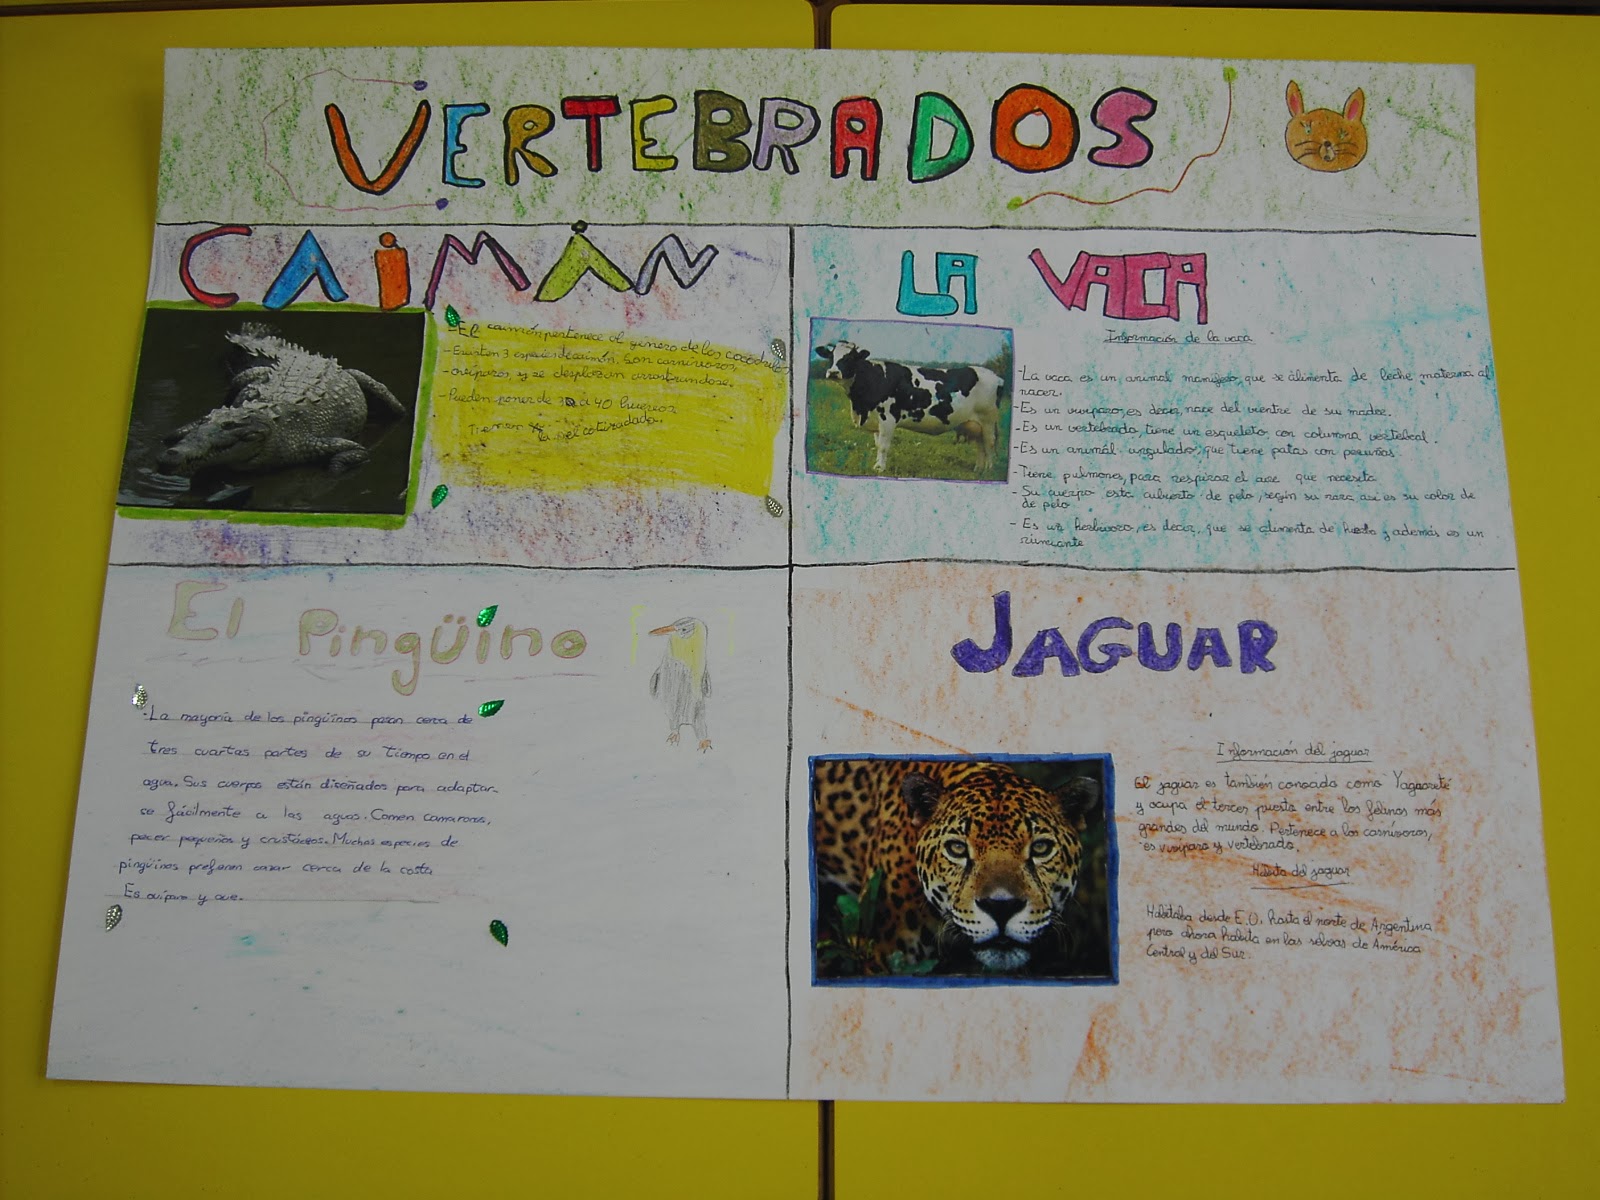 VERTEBRADOS
CAIMÁN
-El caimán pertenece al género de los cocodrilos,
-Existen 3 especies de caimán. Son carnívoros,
-ovíparos, y se desplazan arrastrándose.
-Pueden poner de 30 a 40 huevos
Tienen la piel
LA VACA
Información de la vaca
-La vaca es un animal mamífero, que se alimenta de leche materna al
nacer.
-Es un vivíparo, es decir, nace del vientre de su madre.
-Es un vertebrado, tiene un esqueleto con columna vertebral.
-Es un animál ungulado, que tiene patas con pezuñas.
-Tiene pulmones, para respirar el aire que necesita
-Su cuerpo esta cubierto de pelo, según su raza asi es su color de
de pelo
-Es un herbívoro, es decir, que se alimenta de y además es un
rumiante
El Pingüino
-La mayoría de los pingüinos pasan cerca de
tres cuartas partes de su tiempo en el
agua. Sus cuerpos están diseñados para adaptar-
se fácilmente a las aguas. Comen camarones,
peces pequeños y crustáceos. Muchas especies de
pingüinos prefieren cazar cerca de la costa
Es ovíparo y ave.
JAGUAR
Información del jaguar
El jaguar es también conocido como Yaguareté
y ocupa el tercer puesto entre los felinos más
grandes del mundo. Pertenece a los carnívoros,
es vivíparo y vertebrado.
Habita del jaguar
Habitaba desde E.O. hasta el norte de Argentina
pero ahora habita en las selvas de América
Central y del Sur.